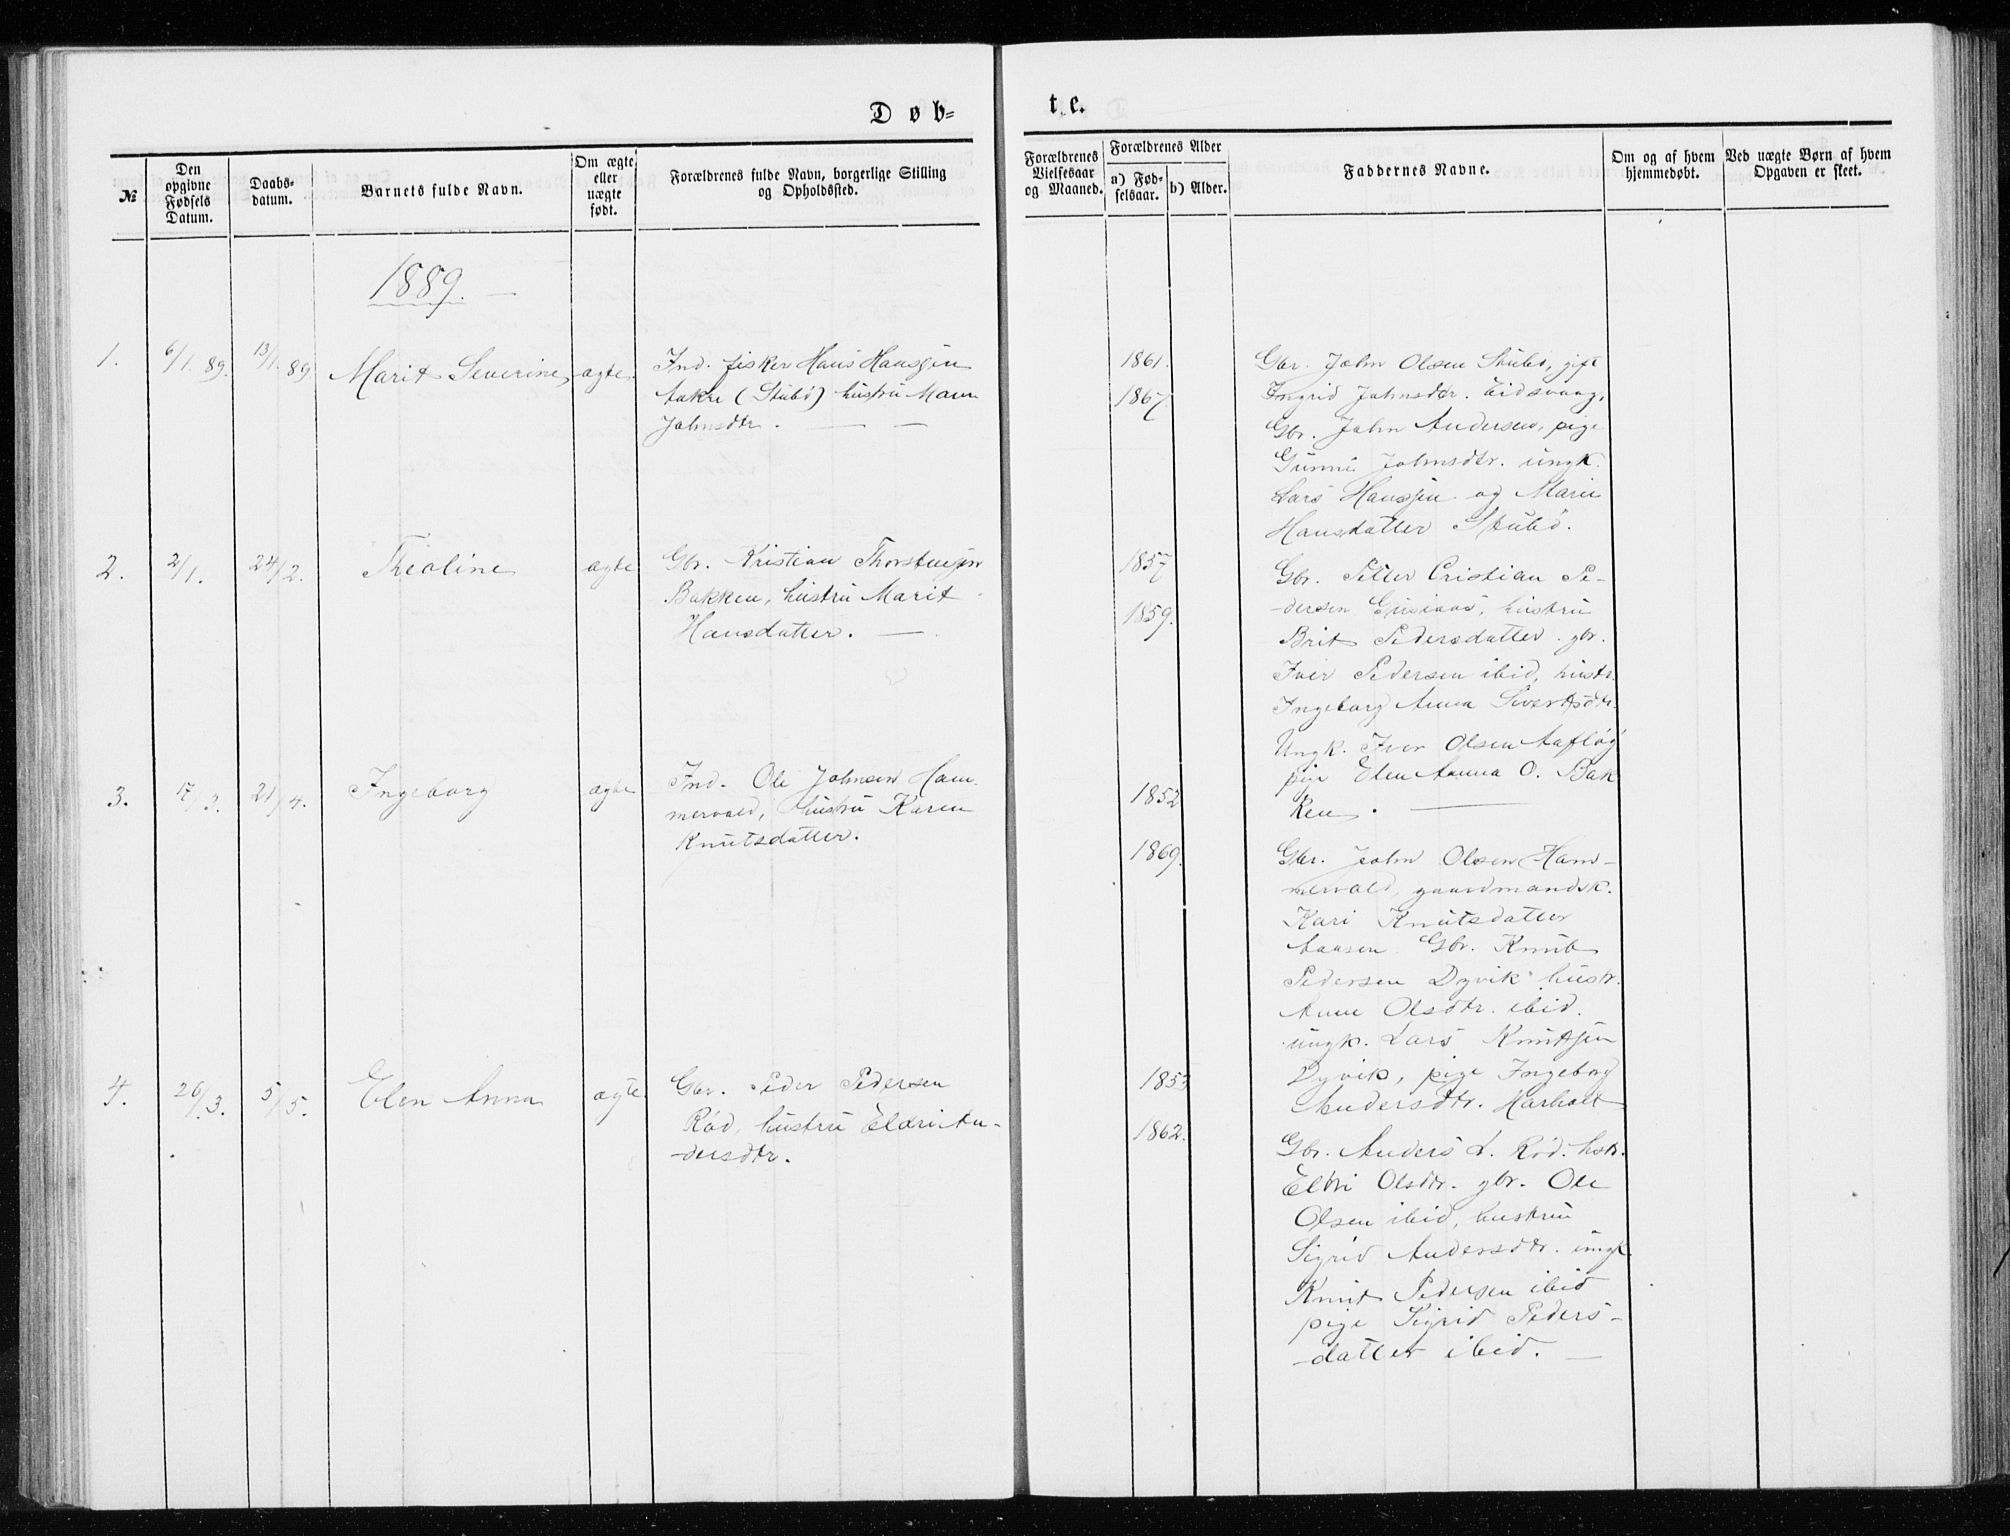 Døb-
te.
№
Den opgivne Fødsels Datum.
Daabs-datum.
Barnets fulde Navn.
Om ægte eller uægte født.
Forældrenes fulde Navn, borgerlige Stilling og Opholdssted.
Forældrenes Vielsesaar og Maaned.
Forældrenes Alder
a) Fødselsaar.
b) Alder.
Faddernes Navne.
Om og af hvem hjemmedøbt.
Ved uægte Børn af hvem Opgaven er skeet.
1889.
1. 6/1. 89. 13/1. 89. Marit Severine ægte
Ind. fisker Hans Hansjen
Aakre (Stubø) hustru Maren
Johnsdtr.
1861.
1867.
Gbr. John Olsen Stubø, gift
Ingrid Johnsdtr. Eidsvaag,
Gbr. John Andersen, pige
Gunni Johnsdtr. ungk.
Lars Hansjen og Marie
Hansdatter Stubø.
2. 2/1. 24/2. Thealine ægte
Gbr. Kristian Thorstensjen
Bakken, hustru Marit
Hansdatter.
1857
1859.
Gbr. Petter Cristian Pe-
-dersen, hustru
Brit Pedersdatter. gbr.
Iver Pedersen ibid, hustr.
Ingeborg Anna Sivertsdtr.
Ungk. Iver Olsen Aafløy
pige Elen Anna O. Bak
ken.
3. 17/3. 21/4. Ingeborg ægte
Ind. Ole Johnsen Ham-
mervold, hustru Karen
Knutsdatter.
1852
1869.
Gbr. John Olsen Ham-
mervold, gaardmandsk.
Kari Knutsdatter
Aaasen. Gbr. Knut
Pedersen Dyvik hustr.
Anne Olsdtr. ibid.
ungk. Lars Knutsjen
Dyvik, pige Ingeborg
Andersdtr. Harholt
4. 26/3. 5/5. Elen Anna ægte.
Gbr. Peder Pedersen
Rød, hustru Eldri An-
-dersdtr.
1853
1862.
Gbr. Anders L. Rød. hstr.
Eldri Olsdtr. gbr. Ole
Olsen ibid, hustru
Sigrid Andersdtr. ungk
Knut Pedersen ibid
pige Sigrid Peders-
-datter ibid.